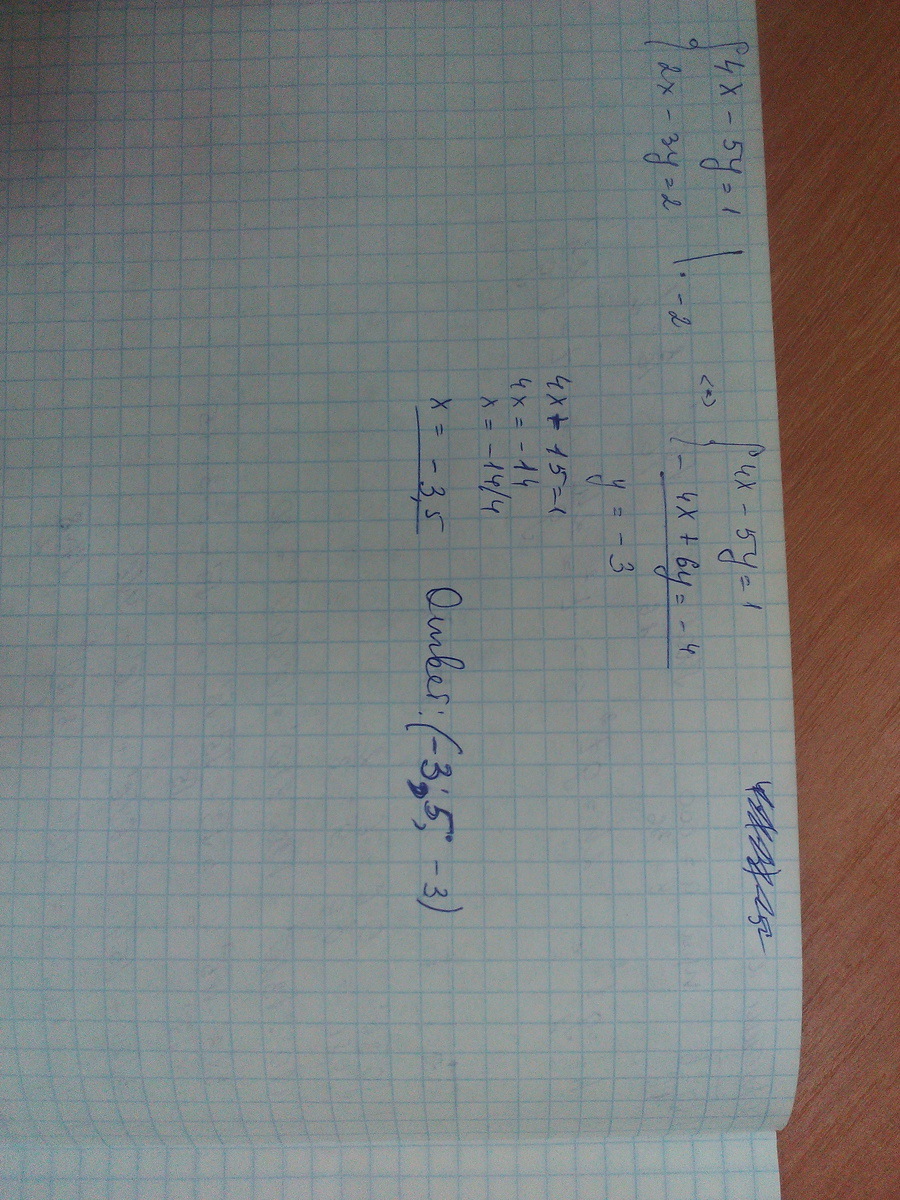 {4x - 5y = 1
{2x - 3y = 2 | · -2
<=> {4x - 5y = 1
{-4x + 6y = -4
y = -3
4x + 15 = 1
4x = -14
x = -14/4
x = -3,5
Ответ: (-3,5; -3)